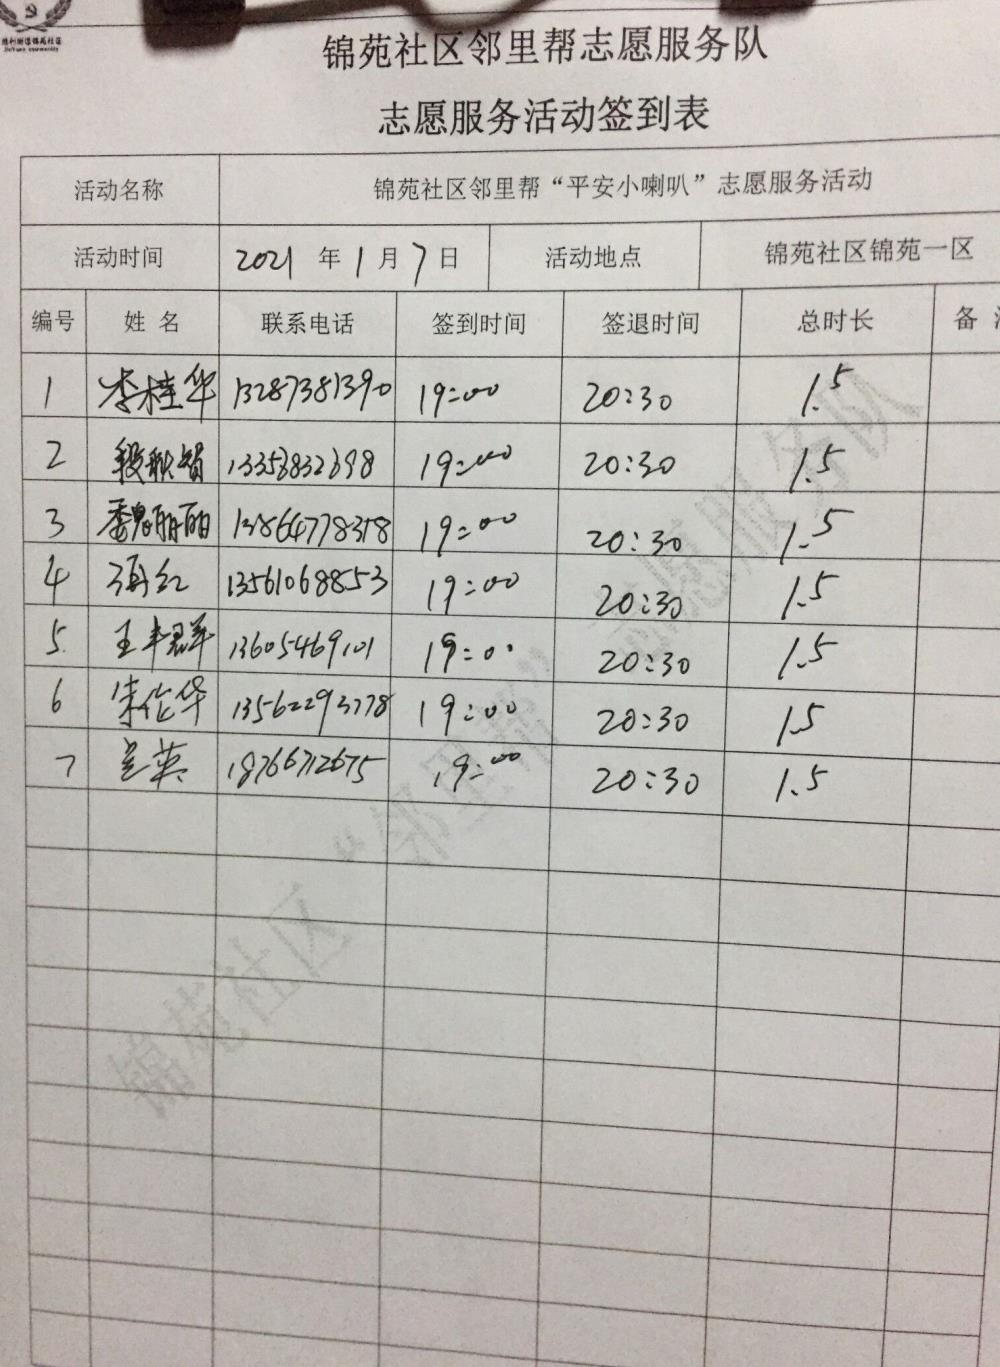 锦苑社区邻里帮志愿服务队
志愿服务活动签到表
活动名称 锦苑社区邻里帮“平安小喇叭”志愿服务活动
活动时间 2021 年 1 月 7 日 活动地点 锦苑社区锦苑一区
编号 姓 名 联系电话 签到时间 签退时间 总时长 备
1 李桂华 13287381390 19:00 20:30 1.5
2 19:00 20:30 1.5
3 魏丽丽 13864778358 19:00 20:30 1.5
4 13561068853 19:00 20:30 1.5
5. 王丰群 13605469101 19:00 20:30 1.5
6 宋伦华 13562293778 19:00 20:30 1.5
7 18766712675 19:00 20:30 1.5
锦苑社区“邻里帮”志愿服务队